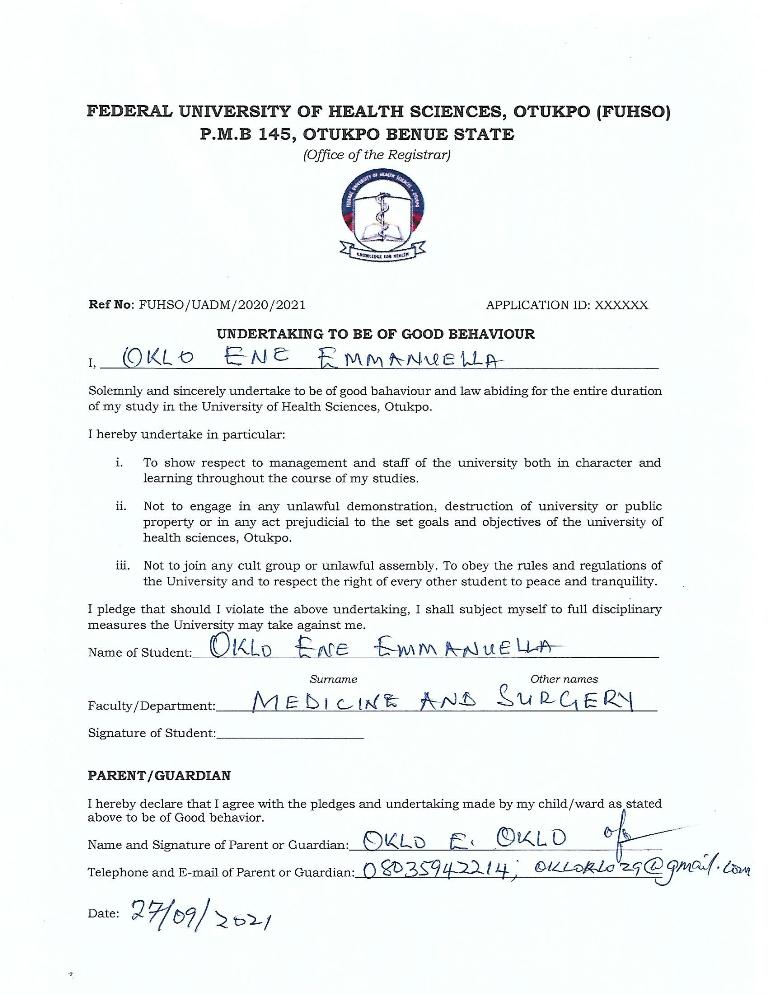 FEDERAL UNIVERSITY OF HEALTH SCIENCES, OTUKPO (FUHSO)
P.M.B 145, OTUKPO BENUE STATE
(Office of the Registrar)
FEDERAL UNIVERSITY OF HEALTH SCIENCES - OTUKPO
KNOWLEDGE FOR HEALTH
Ref No: FUHSO/UADM/2020/2021 APPLICATION ID: XXXXXX
UNDERTAKING TO BE OF GOOD BEHAVIOUR
I, OKLO ENE EMMANUELLA
Solemnly and sincerely undertake to be of good bahaviour and law abiding for the entire duration
of my study in the University of Health Sciences, Otukpo.
I hereby undertake in particular:
i. To show respect to management and staff of the university both in character and
learning throughout the course of my studies.
ii. Not to engage in any unlawful demonstration, destruction of university or public
property or in any act prejudicial to the set goals and objectives of the university of
health sciences, Otukpo.
iii. Not to join any cult group or unlawful assembly. To obey the rules and regulations of
the University and to respect the right of every other student to peace and tranquility.
I pledge that should I violate the above undertaking, I shall subject myself to full disciplinary
measures the University may take against me.
Name of Student: OKLO ENE EMMANUELLA
Surname Other names
Faculty/Department: MEDICINE AND SURGERY
Signature of Student:
PARENT/GUARDIAN
I hereby declare that I agree with the pledges and undertaking made by my child/ward as stated
above to be of Good behavior.
Name and Signature of Parent or Guardian: OKLO E. OKLO
Telephone and E-mail of Parent or Guardian: 08035942214; okloklo29@gmail.com
Date: 27/09/2021